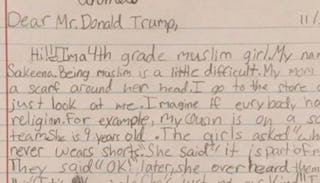 Dear Mr. Donald Trump,
11/
Hi! I'm a 4th grade muslim girl. My na
Sakeena. Being muslim is a little difficult. My mom
a scarf around her head. I go to the store
just look at me. Imagine if eurybody ha
religion. For example, my cousin is on a so
team. She is 9 years old. The girls asked "
never wears shorts." She said "it is part of
They said "OK" later, she over heard them